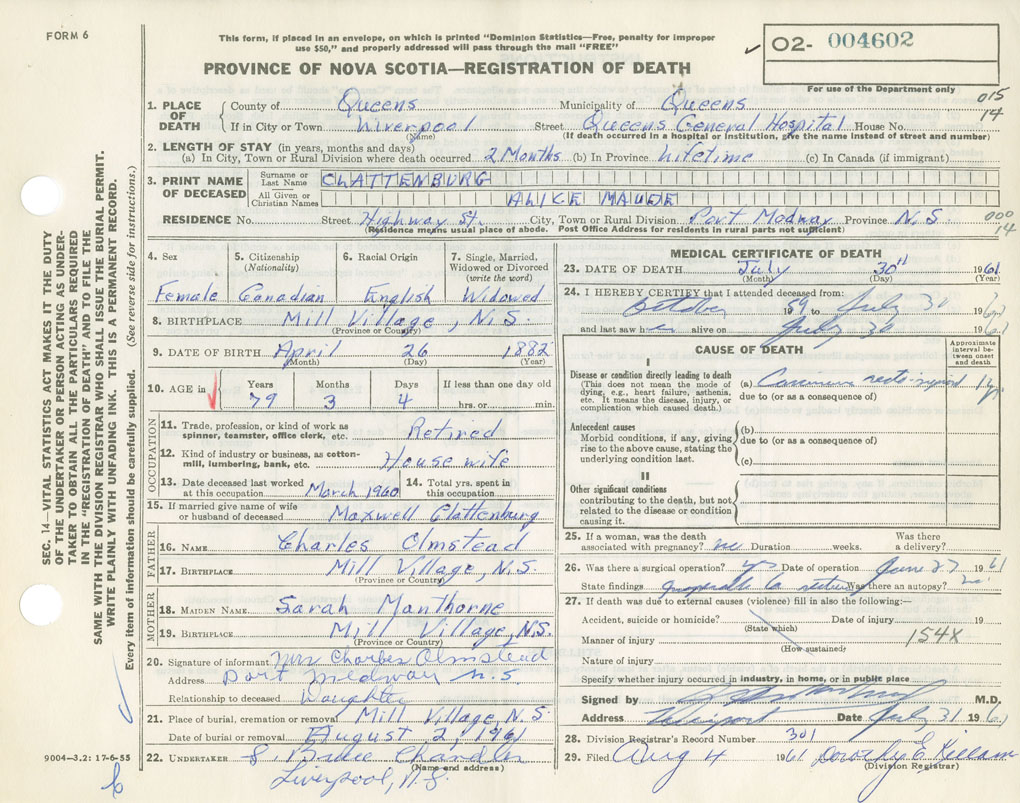 FORM 6
This form, if placed in an envelope, on which is printed "Dominion Statistics—Free, penalty for improper
use $50," and properly addressed will pass through the mail "FREE"
02- 004602
For use of the Department only
PROVINCE OF NOVA SCOTIA—REGISTRATION OF DEATH
015
14
1. PLACE OF DEATH County of Queens Municipality of Queens
If in City or Town Liverpool Street Queens General Hospital House No.
(Name) (If death occurred in a hospital or institution, give the name instead of street and number)
2. LENGTH OF STAY (in years, months and days)
(a) In City, Town or Rural Division where death occurred 2 Months (b) In Province Lifetime (c) In Canada (if immigrant)
3. PRINT NAME OF DECEASED Surname or Last Name CLATTENBURG
All Given or Christian Names ALICE MAUDE
RESIDENCE No. Street Highway St. City, Town or Rural Division Port Medway Province N.S. 000
14
(Residence means usual place of abode. Post Office Address for residents in rural parts not sufficient)
4. Sex Female
5. Citizenship (Nationality) Canadian
6. Racial Origin English
7. Single, Married, Widowed or Divorced (write the word) Widowed
8. BIRTHPLACE Mill Village, N.S.
(Province or County)
9. DATE OF BIRTH April 26 1882
(Month) (Day) (Year)
10. AGE in Years 79 Months 3 Days 4 If less than one day old hrs. or min.
OCCUPATION
11. Trade, profession, or kind of work as spinner, teamster, office clerk, etc. Retired
12. Kind of industry or business, as cotton-mill, lumbering, bank, etc. House wife
13. Date deceased last worked at this occupation March 1960 14. Total yrs. spent in this occupation
15. If married give name of wife or husband of deceased Maxwell Clattenburg
FATHER
16. NAME Charles Olmstead
17. BIRTHPLACE Mill Village, N.S.
(Province or County)
MOTHER
18. MAIDEN NAME Sarah Manthorne
19. BIRTHPLACE Mill Village, N.S.
(Province or Country)
20. Signature of informant Mrs Charles Olmstead
Address Port Medway N.S.
Relationship to deceased Daughter
21. Place of burial, cremation or removal Mill Village, N.S.
Date of burial or removal August 2, 1961
22. UNDERTAKER Bruce Chandler
(Name and address)
Liverpool, N.S.
MEDICAL CERTIFICATE OF DEATH
23. DATE OF DEATH July 30th 1961
(Month) (Day) (Year)
24. I HEREBY CERTIFY that I attended deceased from:
October 59 to July 30 1961
and last saw her alive on July 30 1961
CAUSE OF DEATH
Approximate interval between onset and death
I
Disease or condition directly leading to death
(This does not mean the mode of dying, e.g., heart failure, asthenia, etc. It means the disease, injury, or complication which caused death.)
(a) Carcinoma recto-sigmoid 1 yr
due to (or as a consequence of)
Antecedent causes
Morbid conditions, if any, giving rise to the above cause, stating the underlying condition last.
(b)
due to (or as a consequence of)
(c)
II
Other significant conditions
contributing to the death, but not related to the disease or condition causing it.
25. If a woman, was the death associated with pregnancy? no Duration weeks. Was there a delivery?
26. Was there a surgical operation? yes Date of operation June 27 1961
State findings inoperable Ca rectum Was there an autopsy? no
27. If death was due to external causes (violence) fill in also the following:—
Accident, suicide or homicide? Date of injury 19
(State which)
Manner of injury 154X
(How sustained)
Nature of injury
Specify whether injury occurred in industry, in home, or in public place
Signed by M.D.
Address Liverpool Date July 31 1961
28. Division Registrar's Record Number 301
29. Filed Aug 4 1961 Dorothy E Killam
(Division Registrar)
SEC. 14—VITAL STATISTICS ACT MAKES IT THE DUTY
OF THE UNDERTAKER OR PERSON ACTING AS UNDER-
TAKER TO OBTAIN ALL THE PARTICULARS REQUIRED
IN THE "REGISTRATION OF DEATH" AND TO FILE THE
SAME WITH THE DIVISION REGISTRAR WHO SHALL ISSUE THE BURIAL PERMIT.
WRITE PLAINLY WITH UNFADING INK. THIS IS A PERMANENT RECORD.
Every item of information should be carefully supplied. (See reverse side for instructions.)
9004-3.2: 17-6-55